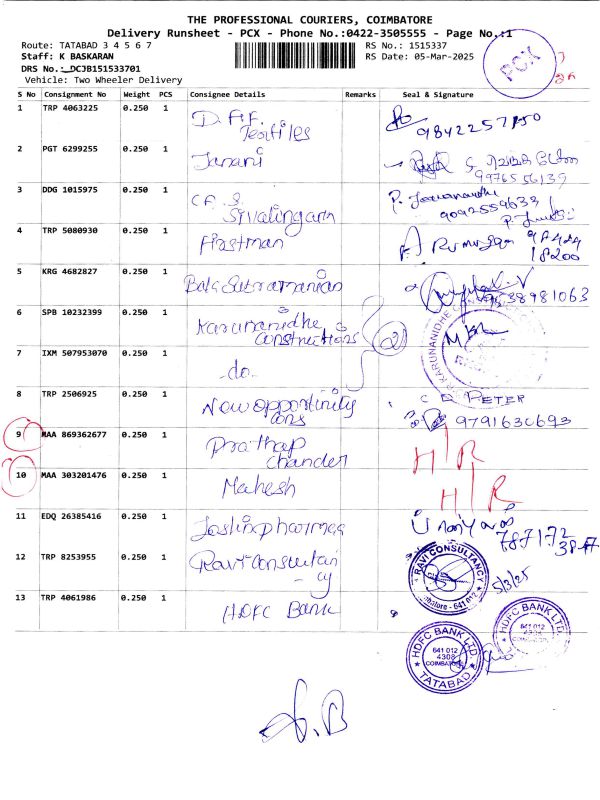 THE PROFESSIONAL COURIERS, COIMBATORE
Delivery Runsheet - PCX - Phone No.:0422-3505555 - Page No.:1
Route: TATABAD 3 4 5 6 7
RS No.: 1515337
Staff: K BASKARAN
RS Date: 05-Mar-2025
DRS No.: DCJB151533701
Vehicle: Two Wheeler Delivery
PCX
S No Consignment No Weight PCS Consignee Details Remarks Seal & Signature
1 TRP 4063225 0.250 1 D.A.F. Textiles 9842257150
2 PGT 6299255 0.250 1 Janani 9976556139
3 DDG 1015975 0.250 1 Sivalingam 9092559633
4 TRP 5080930 0.250 1 Hastman
18200
5 KRG 4682827 0.250 1 Bala Subramanian 9538981063
6 SPB 10232399 0.250 1 Karunanidhe Constructions
7 IXM 507953070 0.250 1 -do-
8 TRP 2506925 0.250 1 New opportunity cons C D PETER
9791630693
9 MAA 869362677 0.250 1 Prathap Chander H/R
10 MAA 303201476 0.250 1 Mahesh H/R
11 EDQ 26385416 0.250 1 Joslinpharmaa
787172
12 TRP 8253955 0.250 1 Ravi Consultancy
RAVI CONSULTANCY
641 012
5/3/25
13 TRP 4061986 0.250 1 HDFC Bank
HDFC BANK LTD.
641 012
4308
COIMBATORE
TATABAD
HDFC BANK LTD.
641 012
4308
A.B